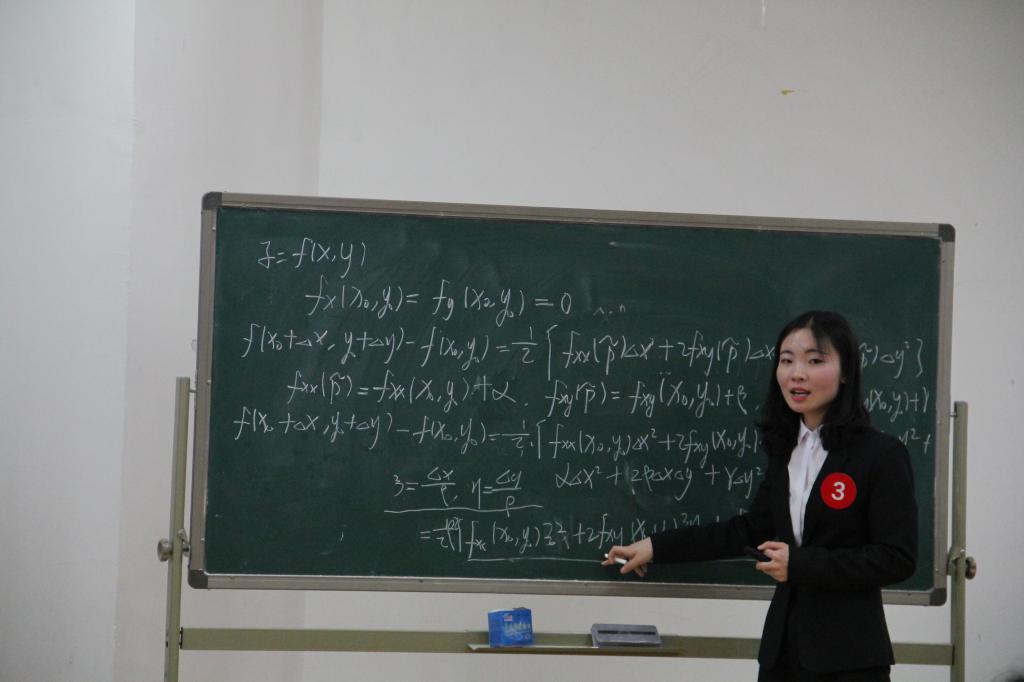 z = f(x, y)
fx(x₀, y₀) = fy(x₀, y₀) = 0
f(x₀+Δx, y₀+Δy) - f(x₀, y₀) = 1/2 { fxx(p̃)Δx² + 2fxy(p̃)Δx p̃)Δy² }
fxx(p̃) = fxx(x₀, y₀) + α, fxy(p̃) = fxy(x₀, y₀) + β, (x₀, y₀) + γ
f(x₀+Δx, y₀+Δy) - f(x₀, y₀) = 1/2 { fxx(x₀, y₀)Δx² + 2fxy(x₀, y₀) y² +
αΔx² + 2βΔxΔy + γΔy²
ξ = Δx/ρ, η = Δy/ρ
= fxx(x₀, y₀)ξ² + 2fxy(x₀, y₀)ξη +
3